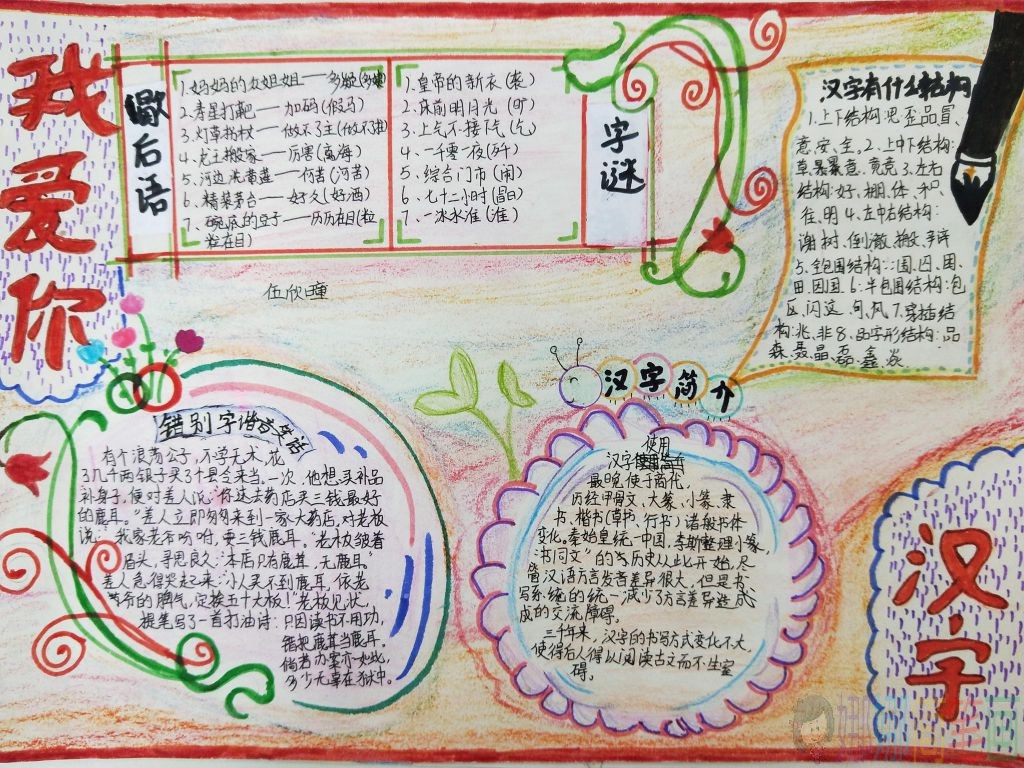 我爱你
歇后语
1.妈妈的女姐姐——多疑(多姨)
2.寿星打靶——加码(假马)
3.灯草拐杖——做不了主(做不
4、龙王搬家——厉害(离海)
5、河边洗黄莲——何苦(河苦)
6、精装茅台——好久(好酒)
7、碗底的豆子——历历在目(粒
粒在目)
1.皇帝的新衣(袭)
2.床前明月光(旷)
3.上气不接下气(乞)
4、一千零一夜(歼)
5、综合门市(闹)
6、七十二小时(晶)
7、一冰水准(淮)
字谜
伍欣瞳
汉字有什么结构
1.上下结构:思歪品冒、
意、安、全、2.上中下结构:
草暴意、竟竞3.左右
结构:好、棚、体、和、
住、明4.左中右结构:
谢树、倒澈、搬、辩
5、全包围结构:围、囚、困、
田、因国、6:半包围结构:包
区、闪这、句、风7.穿插结
构:兆、非8、品字形结构:品
森、聂、晶、磊、鑫、焱
错别字谐音笑话
有个浪荡公子,不学无术,花
了几千两银子买了个县令来当。一次,他想买补品
补身子,便对差人说:“你速去药店买三钱最好
的鹿耳。”差人立即匆匆来到一家大药店,对老板
说:“我家老爷吩咐,要三钱鹿耳。”老板皱着
眉头,寻思良久:“本店只有鹿茸,无鹿耳。”
差人急得哭起来:“小人买不到鹿耳,依老
爷的脾气,定挨五十大板!”老板见状,
提笔写了一首打油诗:只因读书不用功,
错把鹿茸当鹿耳。
倘若办案亦如此,
多少无辜在狱中。
汉字简介
使用
汉字
最晚使于商代,
历经甲骨文、大篆、小篆、隶
书、楷书(草书、行书)诸般书体
变化。秦始皇统一中国,李斯整理小篆,
“书同文”的历史从此开始。尽
管汉语方言发音差异很大,但是书
写系统的统一减少了方言差异造成
成的交流障碍。
三千年来,汉字的书写方式变化不大,
使得后人得以阅读古文而不生窒
碍。
汉字